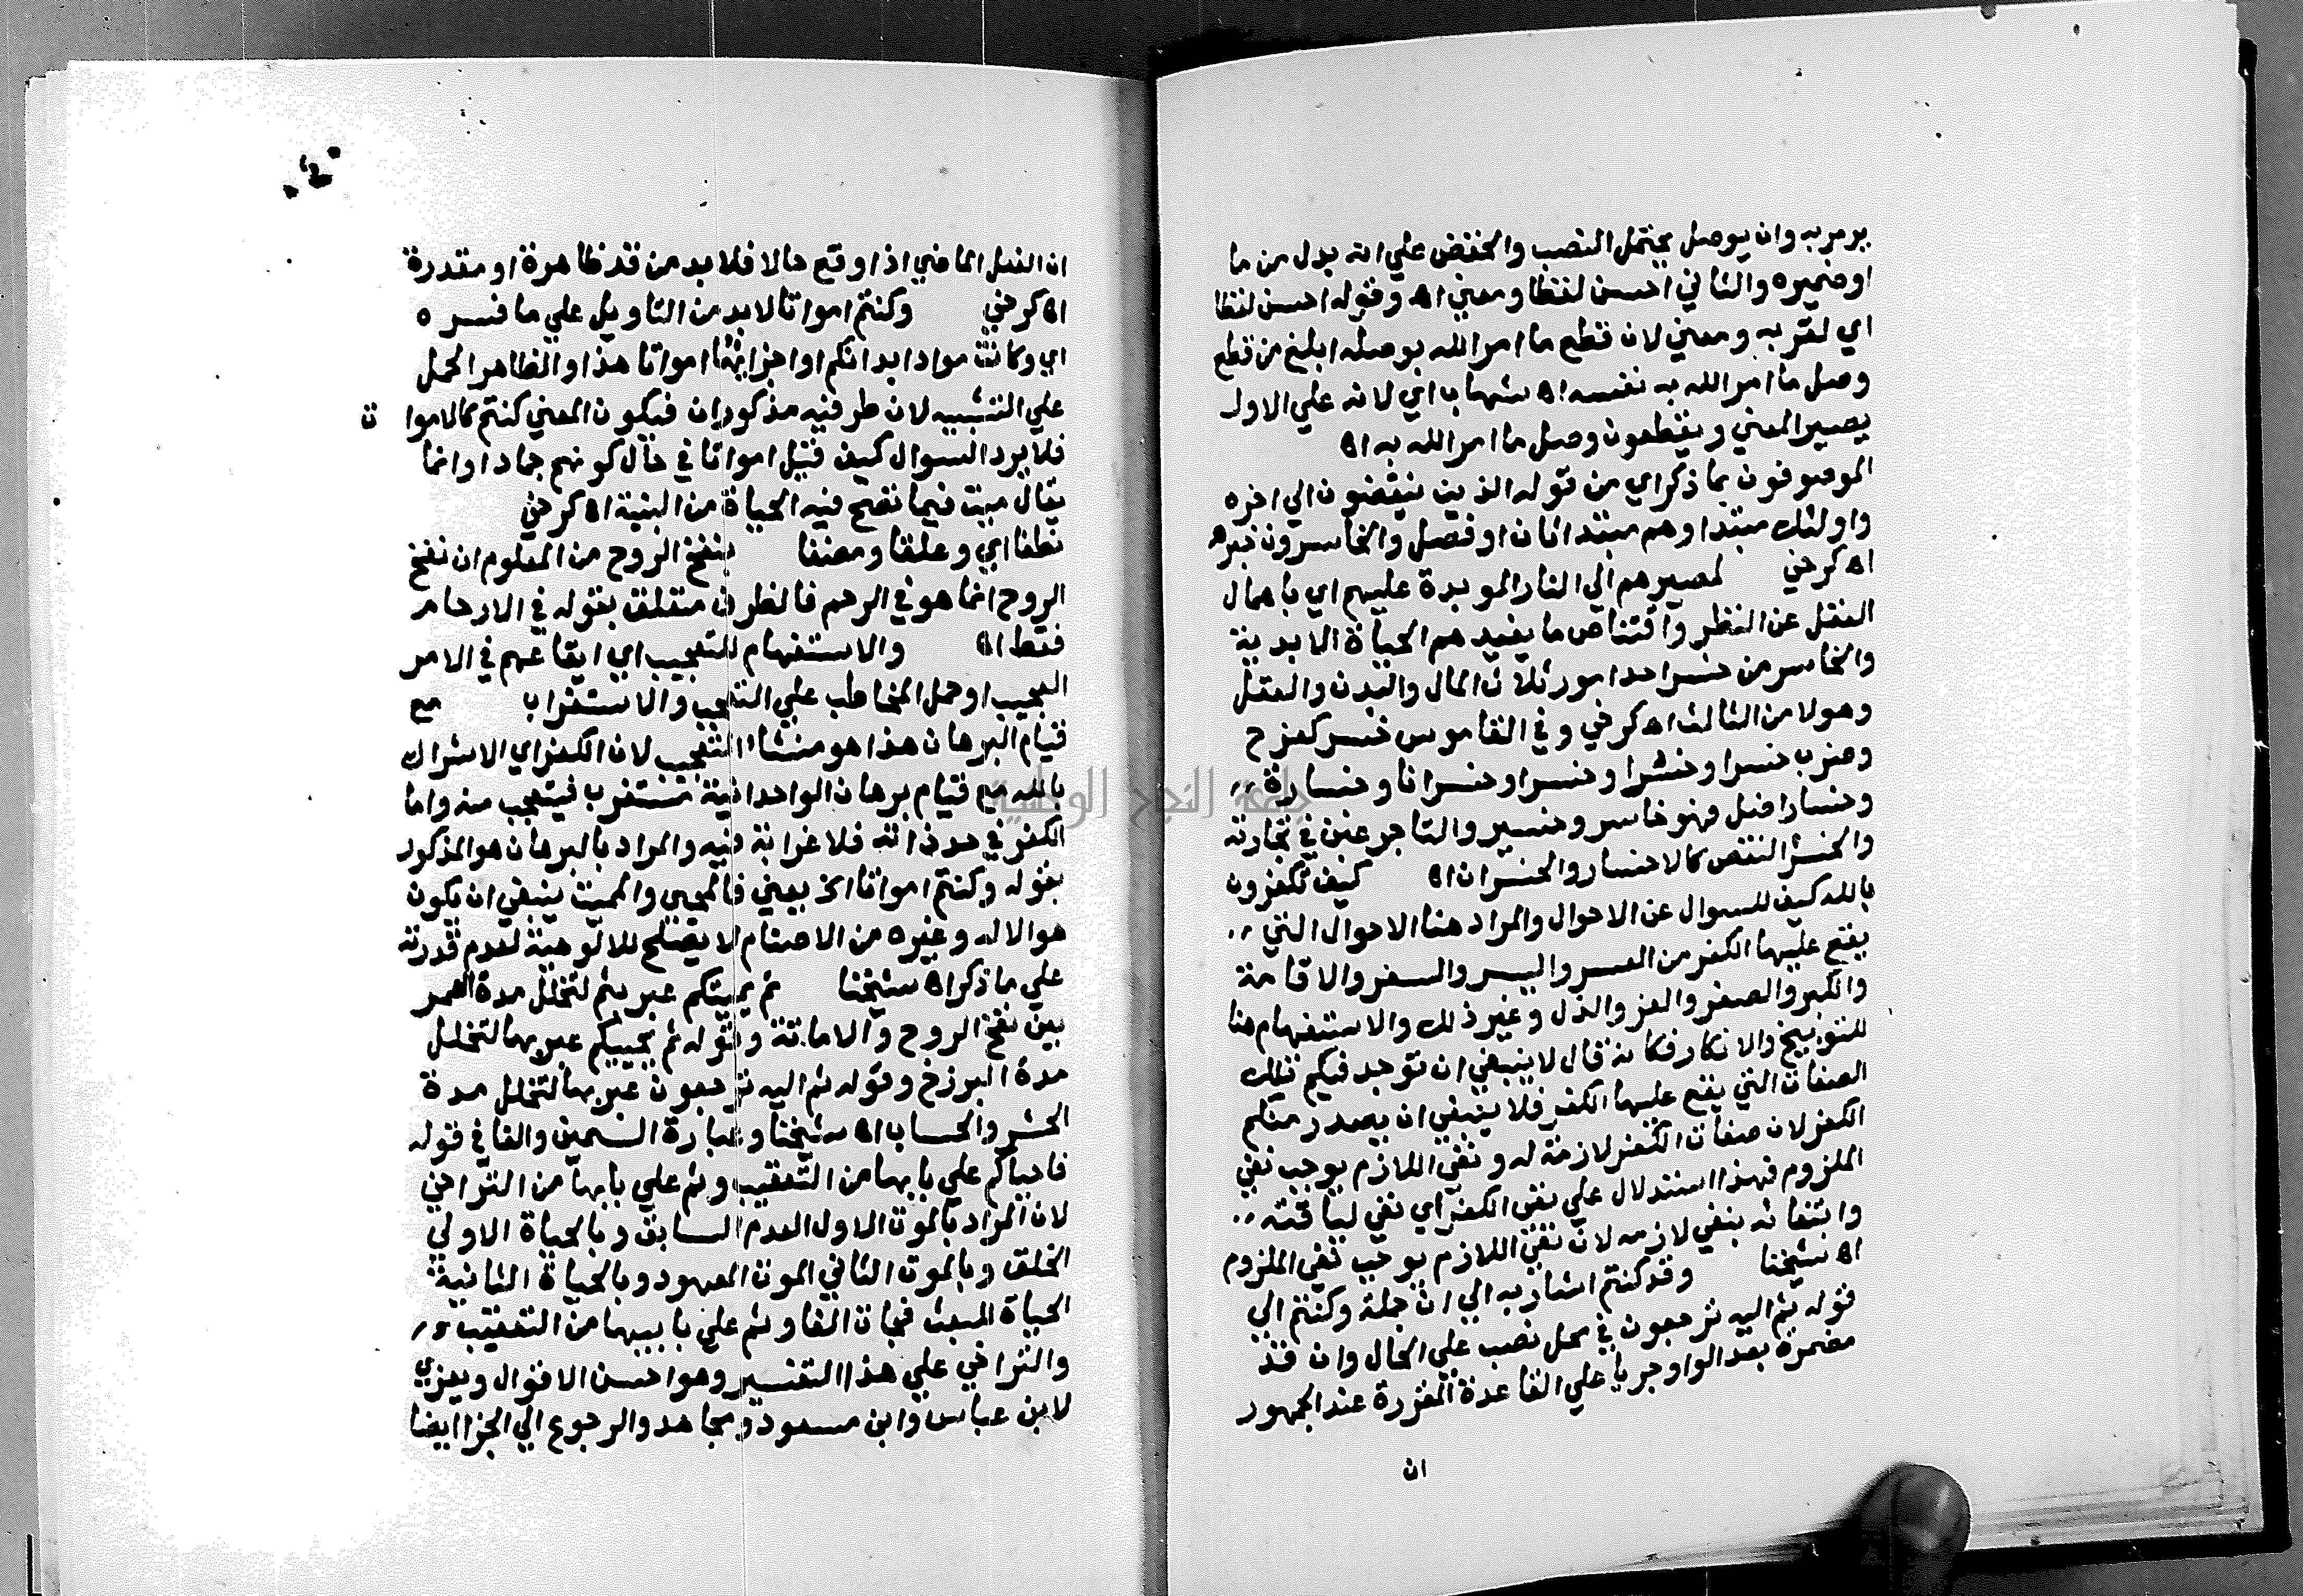 برمربه وان يوصل يحتمل النصب والخفض علي انه بدل من ما
اوضميره والثاني احسن لفظا ومعني اه وقوله احسن لفظا
اي لقربه ومعني لان قطع ما امر الله بوصله ابلغ من قطع
وصل ما امر الله به نفسه اه شهاب اي لانه علي الاول
يصير المعني ويقطعون وصل ما امر الله به اه
الموصوفون بما ذكر اي من قوله الذين ينقضون الي اخره
واولئك مبتدا وهم مبتدا ثان او فصل والخاسرون خبره
اه كرخي لمصيرهم الي النار الموبدة عليهم اي باهمال
العقل عن النظر واقتناص ما يفيدهم الحياة الابدية
والخاسر من خسر احد امور ثلاث المال والبدن والعقل
وهولا من الثالث اه كرخي وفي القاموس خسر كفرح
وضرب خسرا وخسرا وخسرا وخسرانا وخسارة
وخسارا ضل فهو خاسر وخسير والتاجر غبن في تجارته
والخسر النقص كالاخسار والخسران اه كيف تكفرون
بالله كيف للسوال عن الاحوال والمراد هنا الاحوال التي
يقع عليها الكفر من العسر واليسر والسفر والاقامة
والكبر والصغر والعز والذل وغير ذلك والاستفهام هنا
للتوبيخ والانكار فكانه قال لا ينبغي ان توجد فيكم تلك
الصفات التي يقع عليها الكفر فلا ينبغي ان يصدر منكم
الكفر لان صفات الكفر لازمة له ونفي اللازم يوجب نفي
الملزوم فهذا استدلال علي نفي الكفر اي نفي لياقته
وانتفائه بنفي لازمه لان نفي اللازم يوجب نفي الملزوم
اه شيخنا وقد كنتم اشار به الي ان جملة وكنتم الي
قوله ثم اليه ترجعون في محل نصب علي الحال وان قد
مضمرة بعد الواو جريا علي القاعدة المقررة عند الجمهور
ان
ان الفعل الماضي اذا وقع حالا فلا بد من قد ظاهرة او مقدرة
اه كرخي وكنتم امواتا لابد من التاويل علي ما فسره
اي وكانت مواد ابدانكم او اجزائها امواتا هذا والظاهر الحمل
علي التشبيه لان طرفيه مذكوران فيكون المعني كنتم كالاموات
فلا يرد السوال كيف قيل امواتا في حال كونهم جمادا وانما
يقال ميت فيما تصح فيه الحياة من البنية اه كرخي
نطفا اي وعلقا ومضغا بنفخ الروح من المعلوم ان نفخ
الروح انما هو في الرحم فالظرف متعلق بقوله في الارحام
فقط اه والاستفهام للتعجيب اي ايقاعهم في الامر
العجيب او حمل المخاطب علي التعجب والاستغراب مع
قيام البرهان هذا هو منشا التعجيب لان الكفر اي الاشراك
بالله مع قيام برهان الواحدانية مستغرب فيتعجب منه واما
الكفر في حد ذاته فلا غرابة فيه والمراد بالبرهان هو المذكور
بقوله وكنتم امواتا الخ يعني فالمحيي والمميت ينبغي ان يكون
هو الاله وغيره من الاصنام لا يصلح للالوهية لعدم قدرته
علي ما ذكر اه شيخنا ثم يميتكم عبر بثم لتخلل مدة العمر
بين نفخ الروح والاماتة وقوله ثم يحييكم عبر بها لتخلل
مدة البرزخ وقوله ثم اليه ترجعون عبر بها لتخلل مدة
الحشر والحساب اه شيخنا وعبارة السمين والفا في قوله
فاحياكم علي بابها من التعقيب وثم علي بابها من التراخي
لان المراد بالموت الاول العدم السابق وبالحياة الاولي
الخلق وبالموت الثاني الموت المعهود وبالحياة الثانية
الحياة للبعث فجات الفا وثم علي بابيهما من التعقيب
والتراخي علي هذا التفسير وهو احسن الاقوال ويعزي
لابن عباس وابن مسعود ومجاهد والرجوع الي الجزا ايضا
جامعة النجاح الوطنية